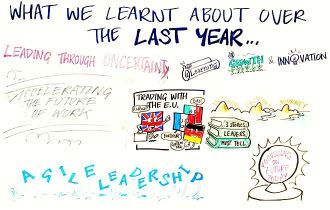 WHAT WE LEARNT ABOUT OVER
THE LAST YEAR...
LEADING THROUGH UNCERTAINTY
Learning
GROWTH & INNOVATION
ACCELERATING
THE FUTURE
OF WORK
TRADING WITH
THE E.U.
3 STORIES
LEADERS
MUST TELL
AGILE LEADERSHIP